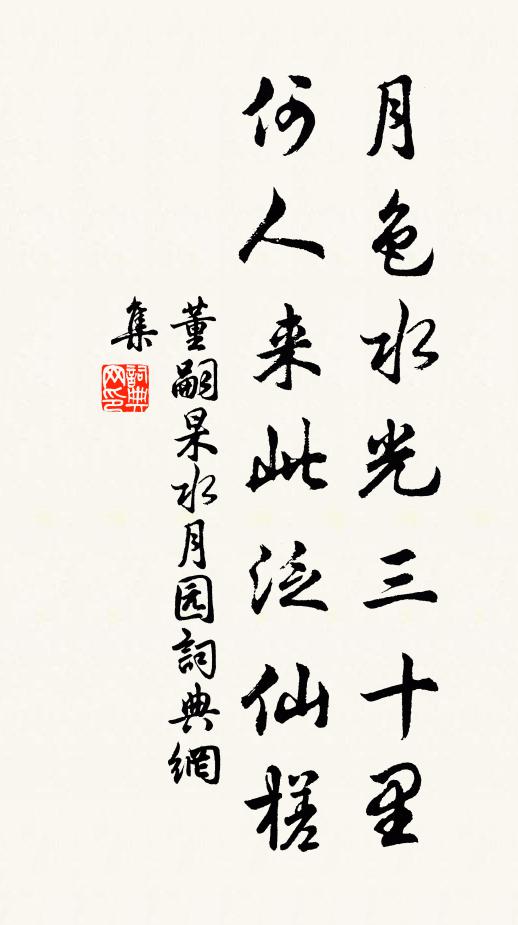 月色水光三十里
何人来此泛仙槎
董嗣杲水月园詞典網
集
詞典
网印